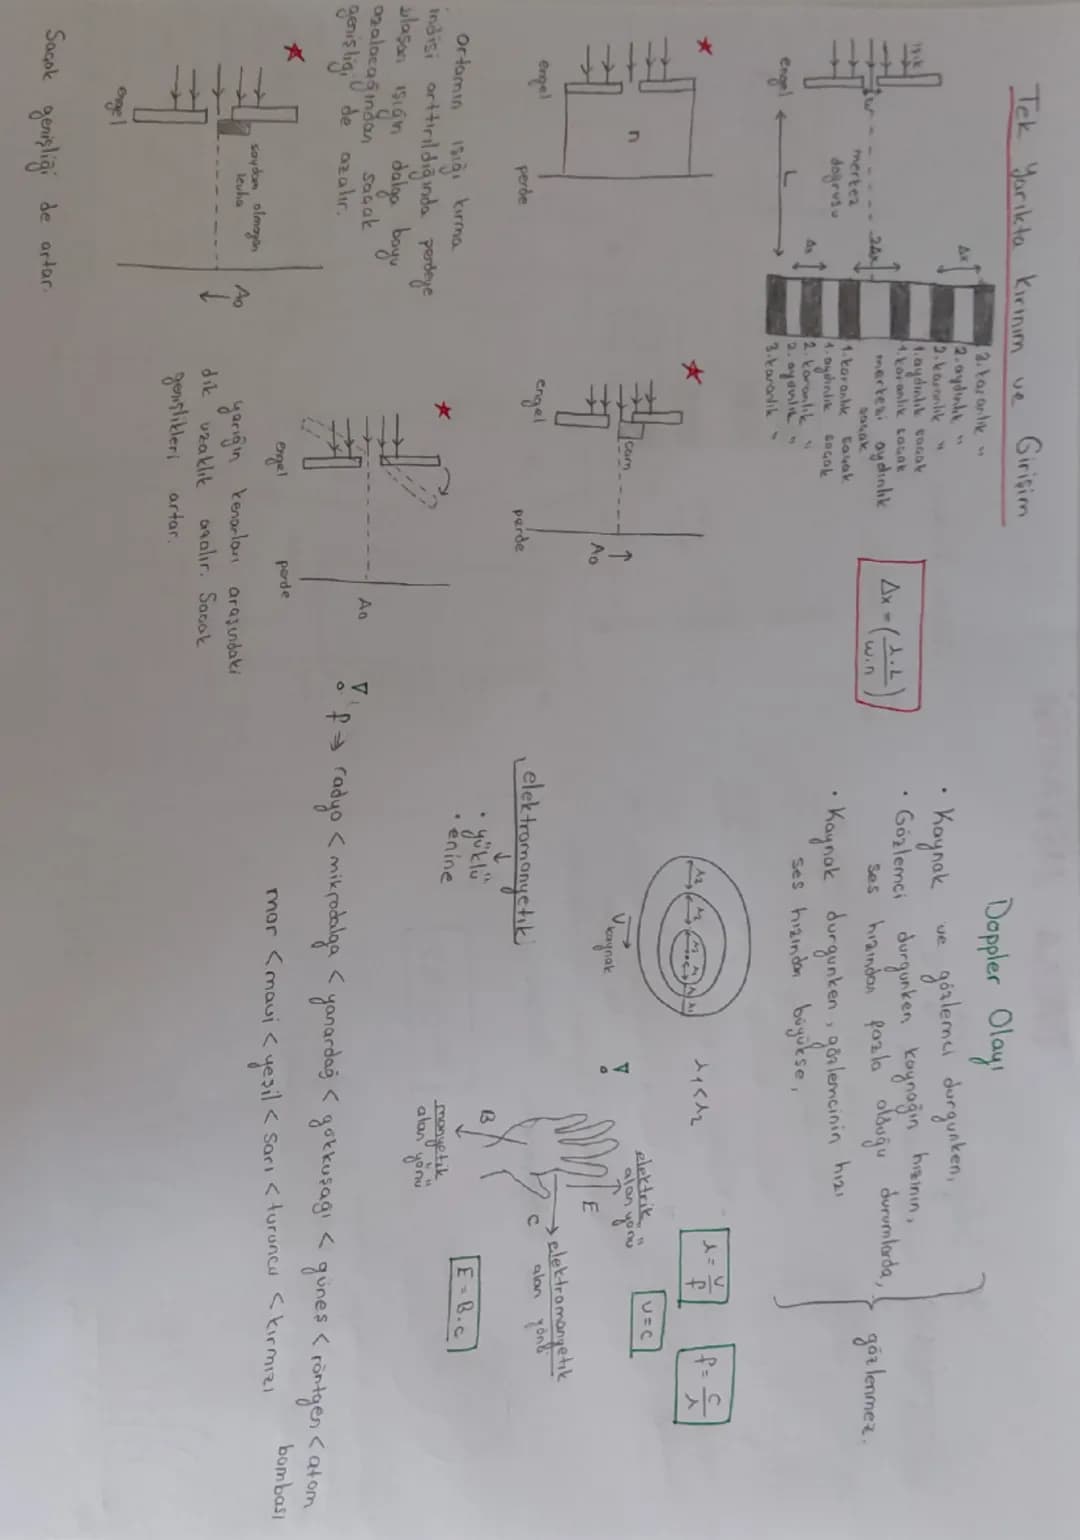 Tek Yarıkta Kırınım ve Girişim
ışık
w
merkez
doğrusu
engel
L
Δx
2Δx
Δx
3. karanlık "
2. aydınlık "
2. karanlık "
1. aydınlık saçak
1. karanlık saçak
merkezi aydınlık
saçak
1. karanlık saçak
1. aydınlık saçak
2. karanlık "
2. aydınlık "
3. karanlık "
Δx = (λ.L / w.n)
n
engel
perde
Ortamın ışığı kırma
indisi arttırıldığında perdeye
ulaşan ışığın dalga boyu
azalacağından saçak
genişliği de azalır.
cam
A₀
engel
perde
saydam olmayan
levha
A₀
engel
Saçak genişliği de artar.
A₀
engel
perde
yarığın kenarları arasındaki
dik uzaklık azalır. Saçak
genişlikleri artar.
Doppler Olayı
• Kaynak ve gözlemci durgunken,
• Gözlemci durgunken kaynağın hızının,
ses hızından fazla olduğu durumlarda,
• Kaynak durgunken, gözlemcinin hızı
ses hızından büyükse,
gözlenmez.
λ₂ λ₂ λ₂ λ₁ λ₁
V kaynak
λ₁ < λ₂
λ = v / f
f = c / λ
v = c
elektromanyetik
• yüklü
• enine
elektrik
alan yönü
E
elektromanyetik
alan yönü
C
B
manyetik
alan yönü
E = B.c
f ⇒ radyo < mikrodalga < yanardağ < gökkuşağı < güneş < röntgen < atom
bombası
mor < mavi < yeşil < sarı < turuncu < kırmızı